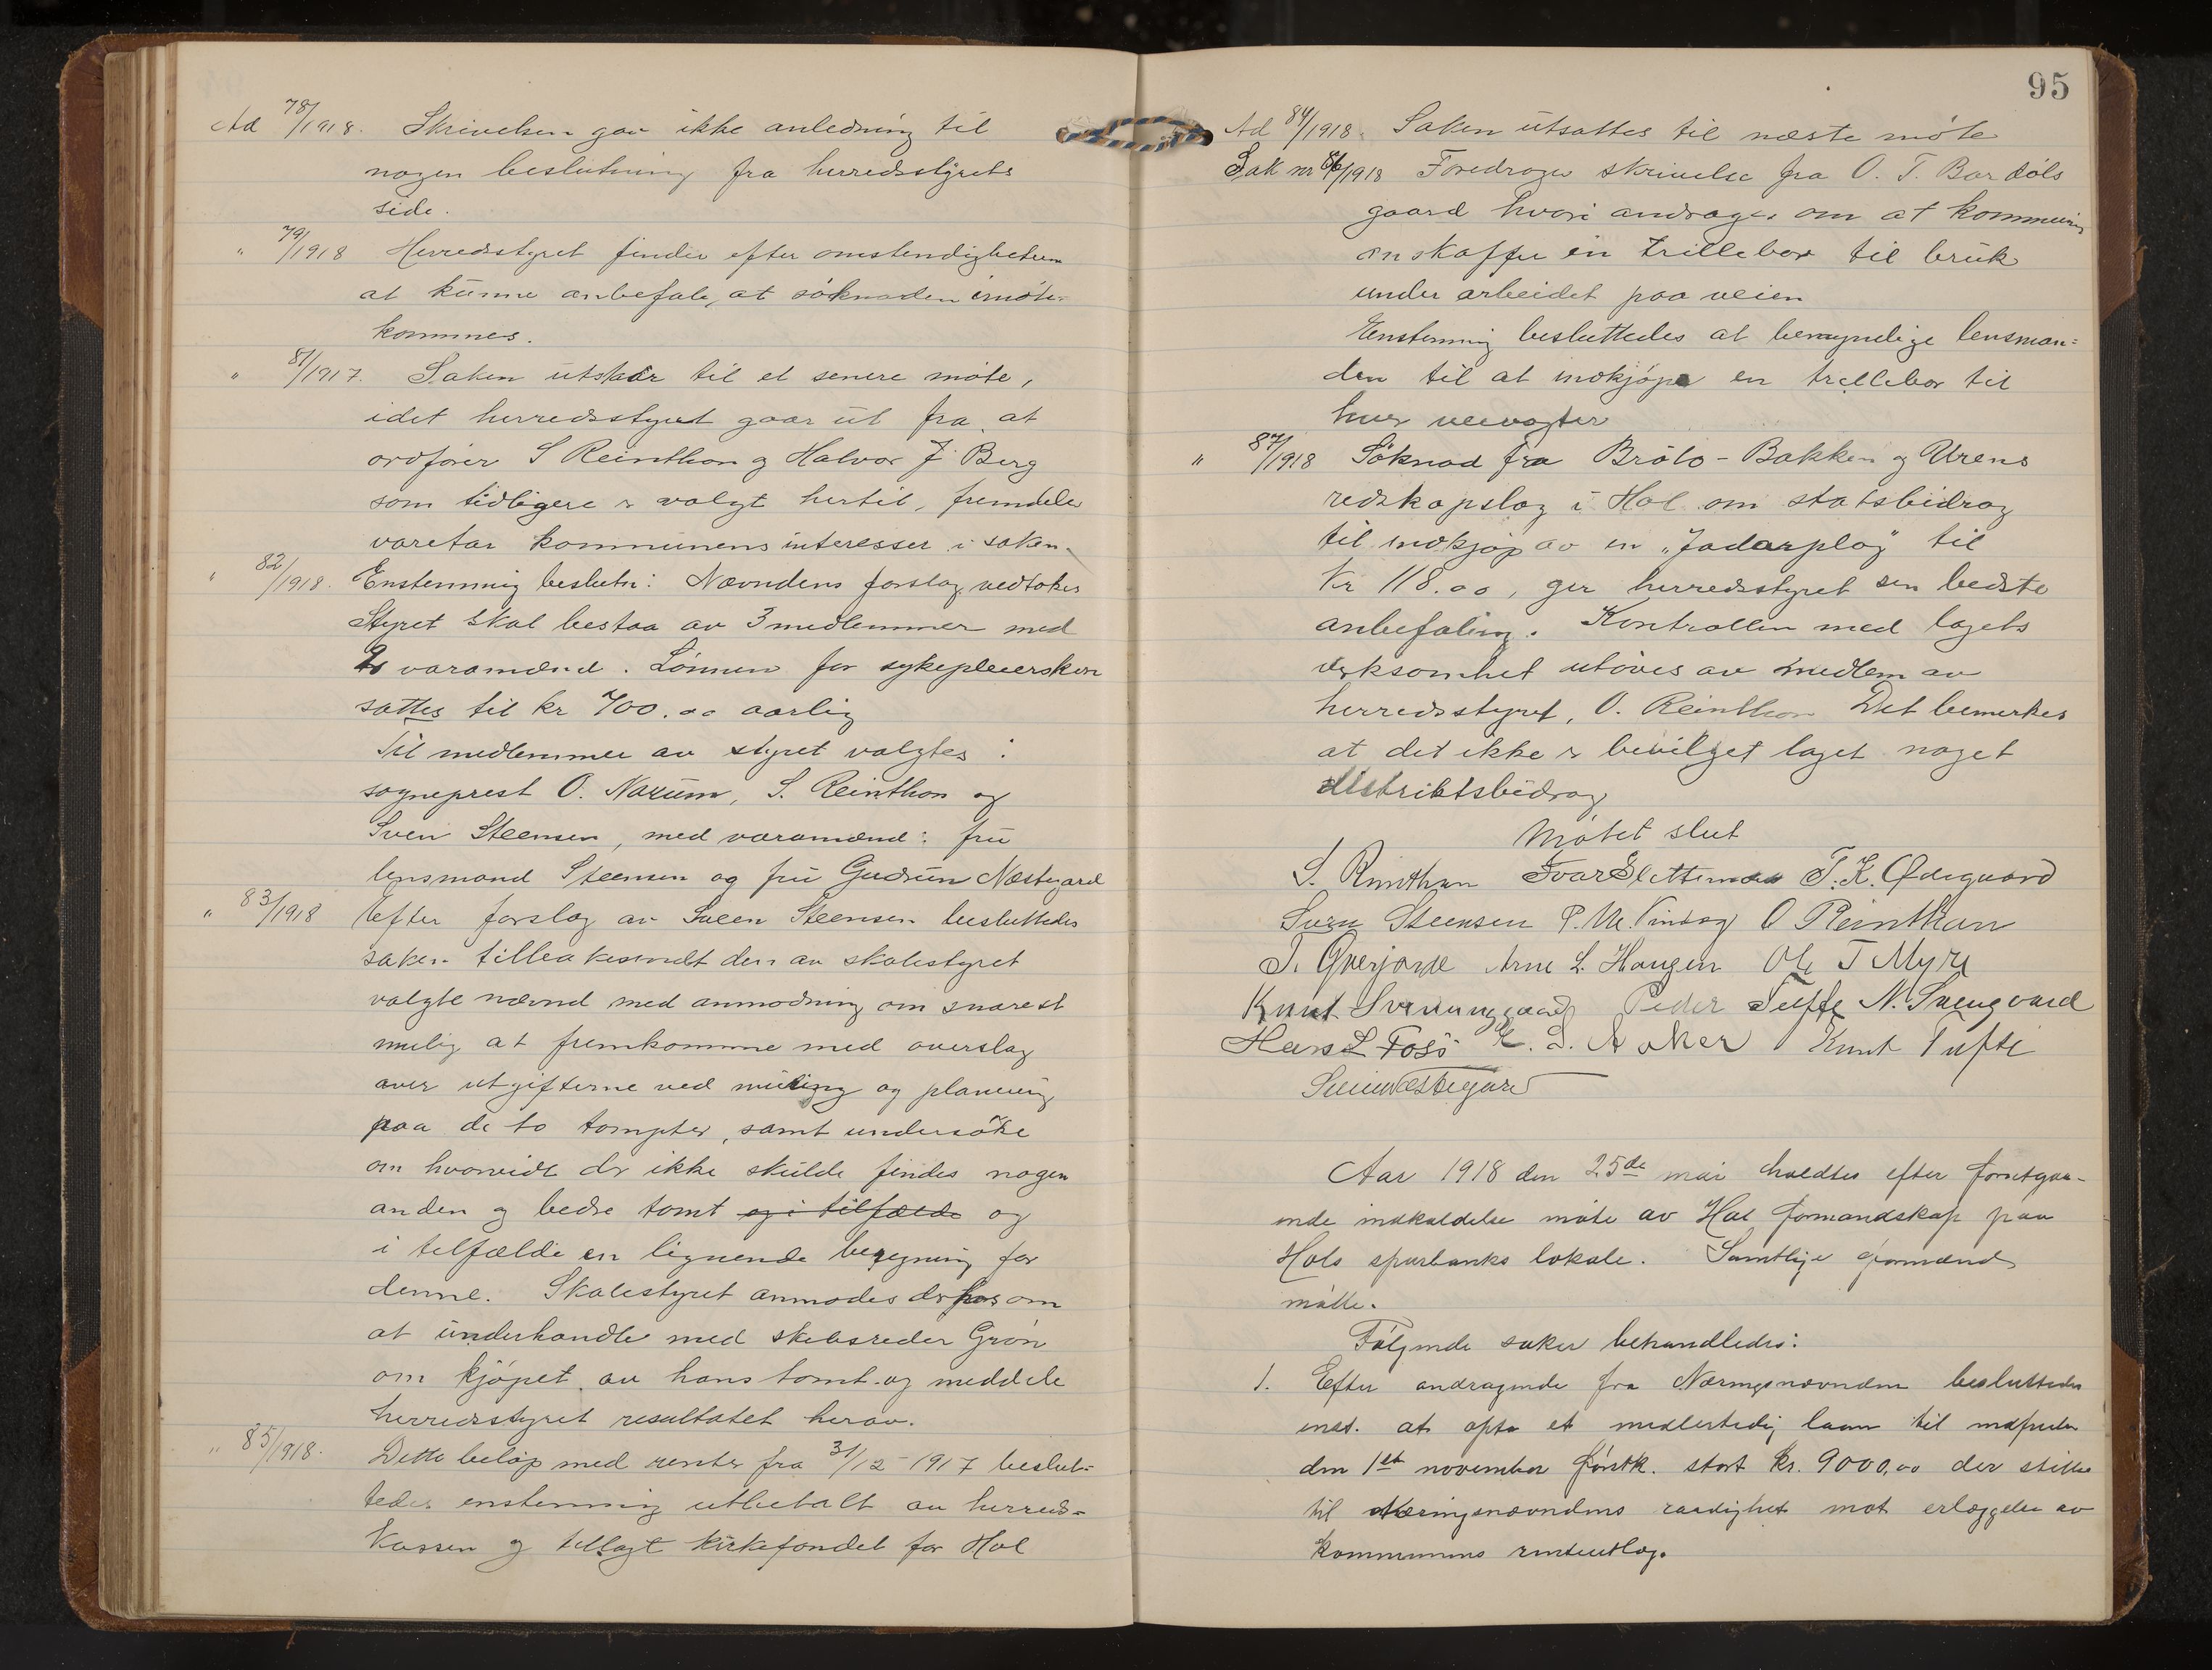 Ad 78/1918. Skrivelsen gav ikke anledning til
nogen beslutning fra herredsstyrets
side.
" 79/1918 Herredsstyret finder efter omstendigheten
at kunne anbefale, at söknaden imöte-
kommes.
" 81/1917. Saken utstaar til et senere möte,
idet herredsstyret gaar ut fra, at
ordförer S Reinthon og Halvor J Berg
som tidligere er valgt hertil, fremdeles
varetar kommunens interesser i saken.
" 82/1918. Enstemmig beslutn: Nævndens forslag vedtokes
Styret skal bestaa av 3 medlemmer med
2 varamænd. Lönnen for sykepleiersken
sattes til kr 700.00 aarlig
Til medlemmer av styret valgtes:
sogneprest O. Naxum, S. Reinthon og
Sven Steensen, med varamænd: fru
lensmand Steensen og fru Gudrun Næstegard
" 83/1918 Efter forslag av Sveen Steensen besluttedes
saken tilbakesendt den av skolestyret
valgte nævnd med anmodning om snarest
mulig at fremkomme med overslag
over utgifterne ved muring og planering
paa de to tompter, samt undersöke
om hvorvidt der ikke skulde findes nogen
anden og bedre tomt og i tilfælde og
i tilfælde en lignende beregning for
denne. Skolestyret anmodes derhos om
at underhandle med skibsreder Grön
om kjöpet av hans tomt og meddele
herredsstyret resultatet herav.
" 85/1918. Dette belöp med renter fra 31/12 1917 beslut-
tedes enstemmig utbetalt av herreds-
kassen og tillagt kirkefondet for Hol
95
Ad 84/1918. Saken utsattes til næste möte
Sak nr 86/1918 Foredroges skrivelse fra O. T. Bardöls
gaard hvori andrages om at kommunen
anskaffer en trillebor til bruk
under arbeidet paa veien
Enstemmig besluttedes at bemyndige lensman-
den til at indkjöpe en trillebor til
hver veivogter
" 87/1918 Söknad fra Bröto-Bakken og Urens
redskapslag i Hol om statsbidrag
til indkjöp av en "Jadarplog" til
Kr 118.00, ger herredsstyret sen bedste
anbefaling. Kontrollen med lagets
virksomhet utöves av medlem av
herredsstyret, O. Reinthon Det bemerkes
at det ikke er bevilget laget noget
distriktsbidrag
Mötet slut
S. Reinthon Ivar Slettemoen T. K. Ødegaard
Sven Steensen P. M. Tindag O Reinthon
T. Gverjorde Arne L. Haugen Ole T Myre
Knut Svenunggaard Peder Tufte N. Svengaard
Hans L Foss E. S. Aaker Knut Tufte
Svein Nestegard
Aar 1918 den 25de mai holdtes efter forutgaa-
ende indkaldelse möte av Hol formandskap paa
Hols sparbanks lokale. Samtlige formænd
mötte.
Fölgende saker behandledes:
1. Efter andragende fra Næringsnævnden besluttedes
enst. at opta et midlertidig laan til indfrielse
den 1st november förstk. stort kr. 9000,00 der stilles
til Næringsnævndens raadighet mot erlæggelse av
kommunens renteutlæg.